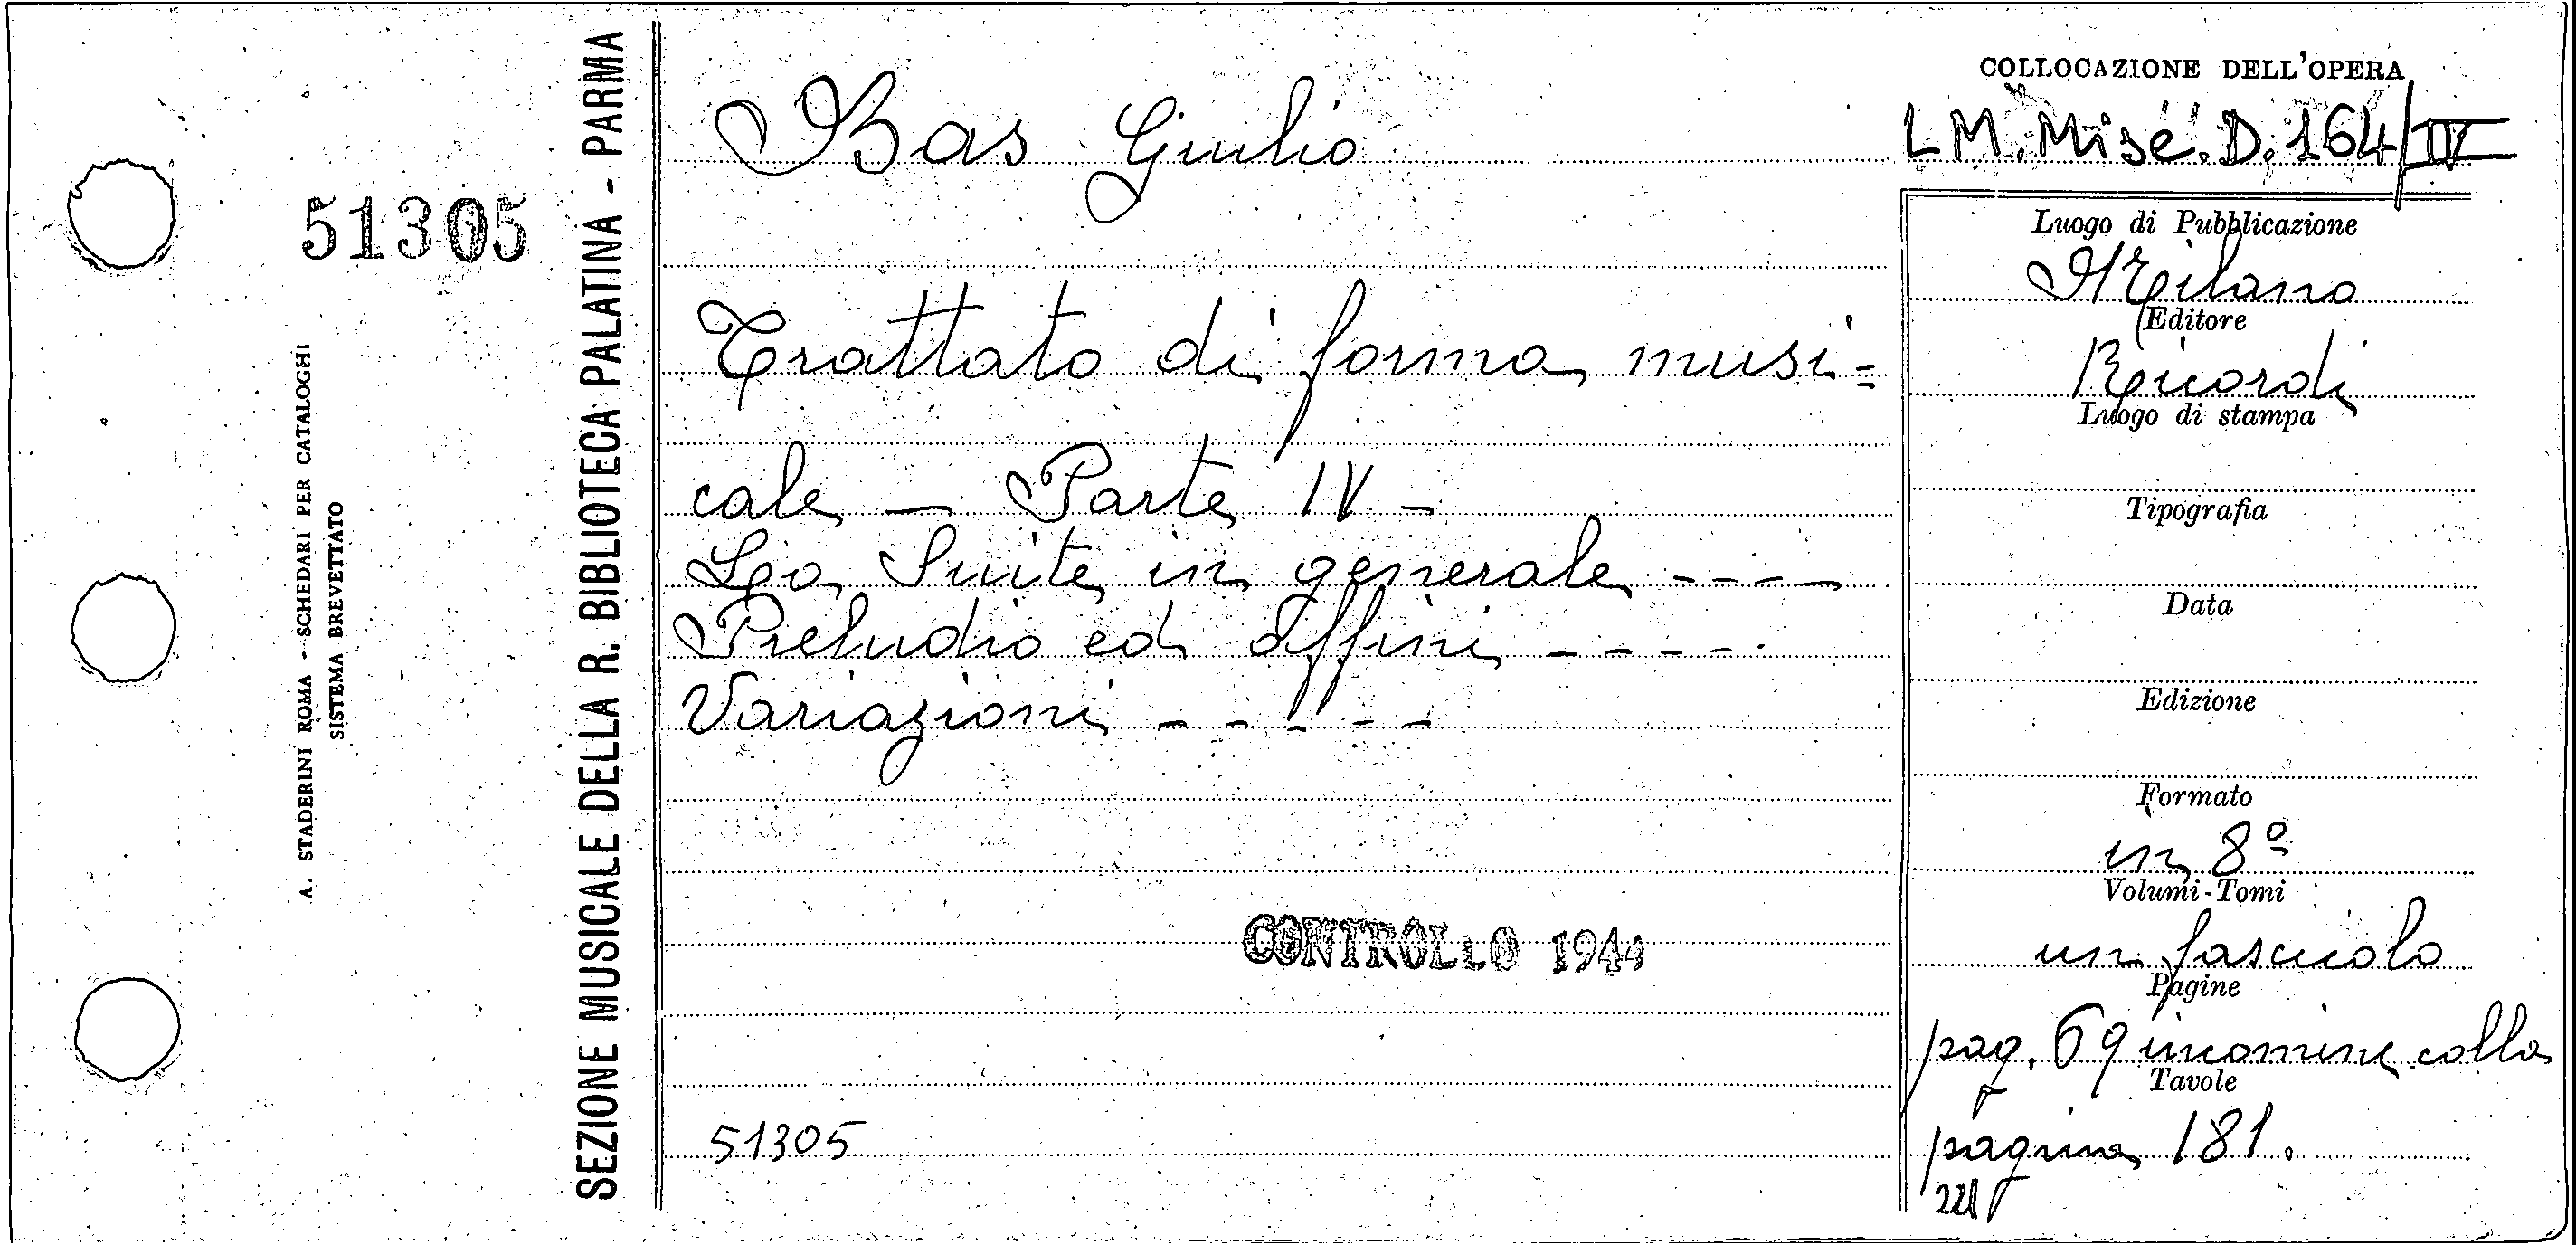 51305
A. STADERINI ROMA - SCHEDARI PER CATALOGHI
SISTEMA BREVETTATO
SEZIONE MUSICALE DELLA R. BIBLIOTECA PALATINA - PARMA
Bas Giulio
Trattato di forma musi=
cale - Parte IV -
La Suite in generale ----
Preludio ed affini -----
Variazioni -----
CONTROLLO 1944
51305
COLLOCAZIONE DELL'OPERA
LM. Misc. D. 164/IV
Luogo di Pubblicazione
Milano
Editore
Ricordi
Luogo di stampa
Tipografia
Data
Edizione
Formato
in 8º
Volumi-Tomi
un fascicolo
Pagine
pag. 69 incominc. colla
Tavole
pagina 181.